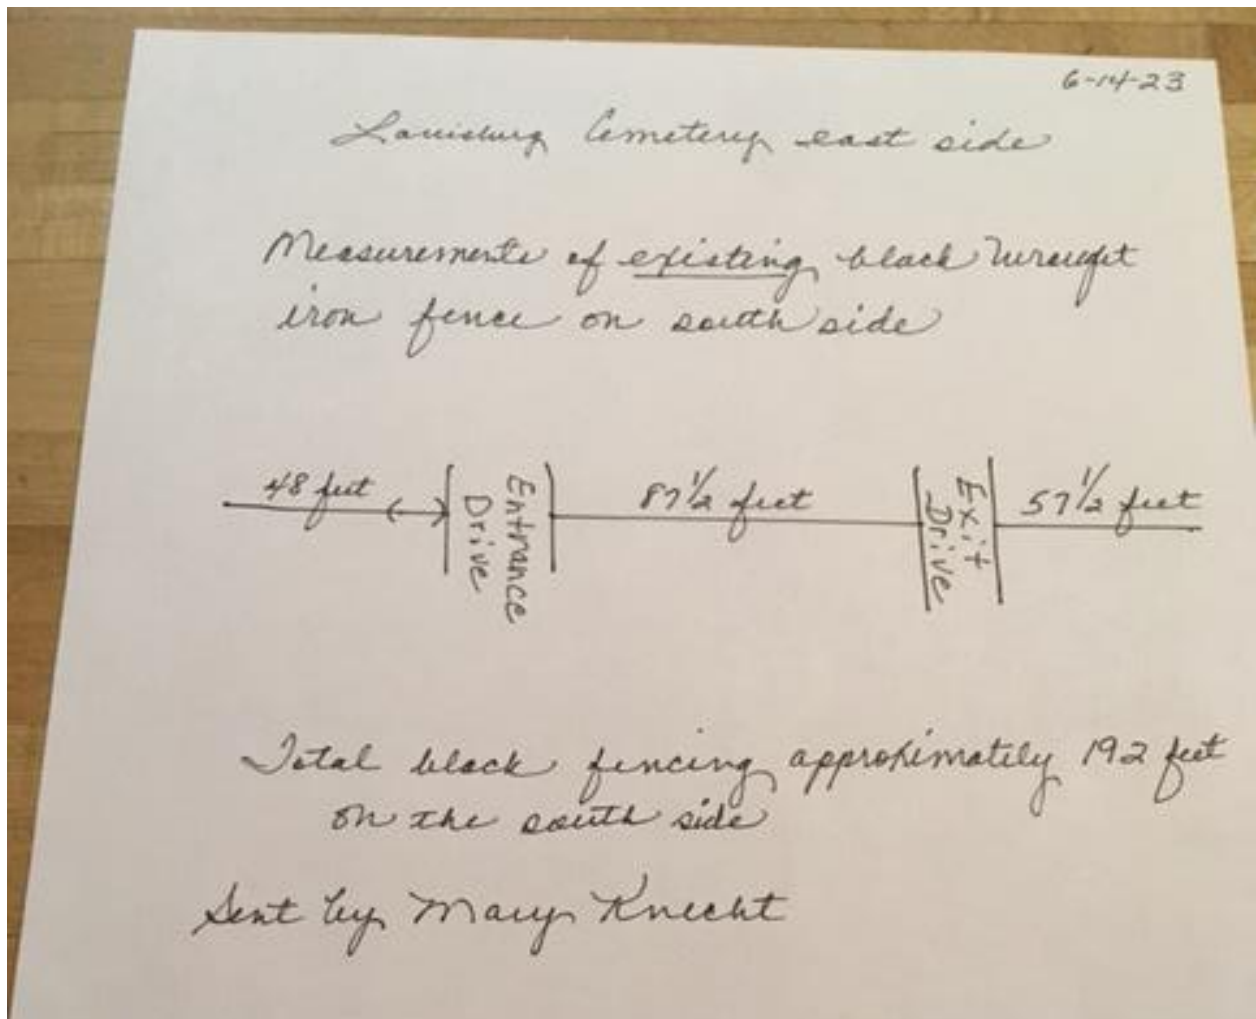 6-14-23
Louisburg Cemetery east side
Measurements of existing black wrought
iron fence on south side
48 feet
Entrance
Drive
87 1/2 feet
Exit
Drive
57 1/2 feet
Total black fencing approximately 192 feet
on the south side
Sent by Mary Knecht